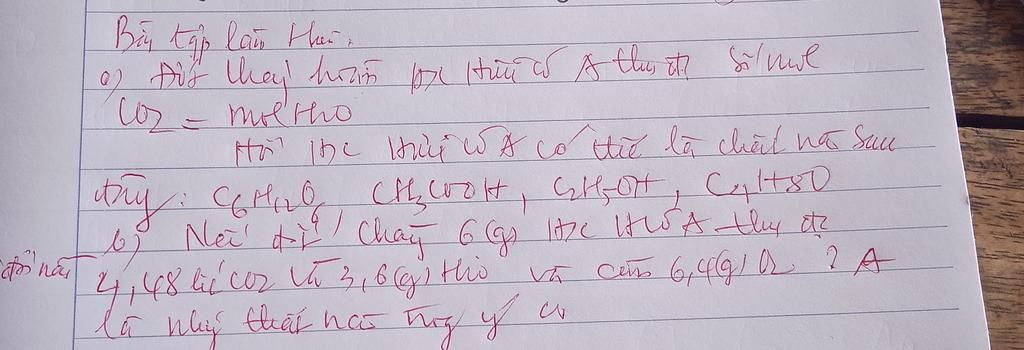 Bài tập làm thêm.
a) Đốt cháy hoàn HC Hữu cơ A thu đc Số mol
CO2 = mol H2O
Hỏi HC Hữu cơ A có thể là chất nào sau
đây: C6H12O6, CH3COOH, C2H5OH, C4H8O
b) Nếu đốt cháy 6(g) HC HCơ A thu đc
4,48 lít CO2 và 3,6(g) H2O và cần 6,4(g) O2 ? A
là chất nào trong ý